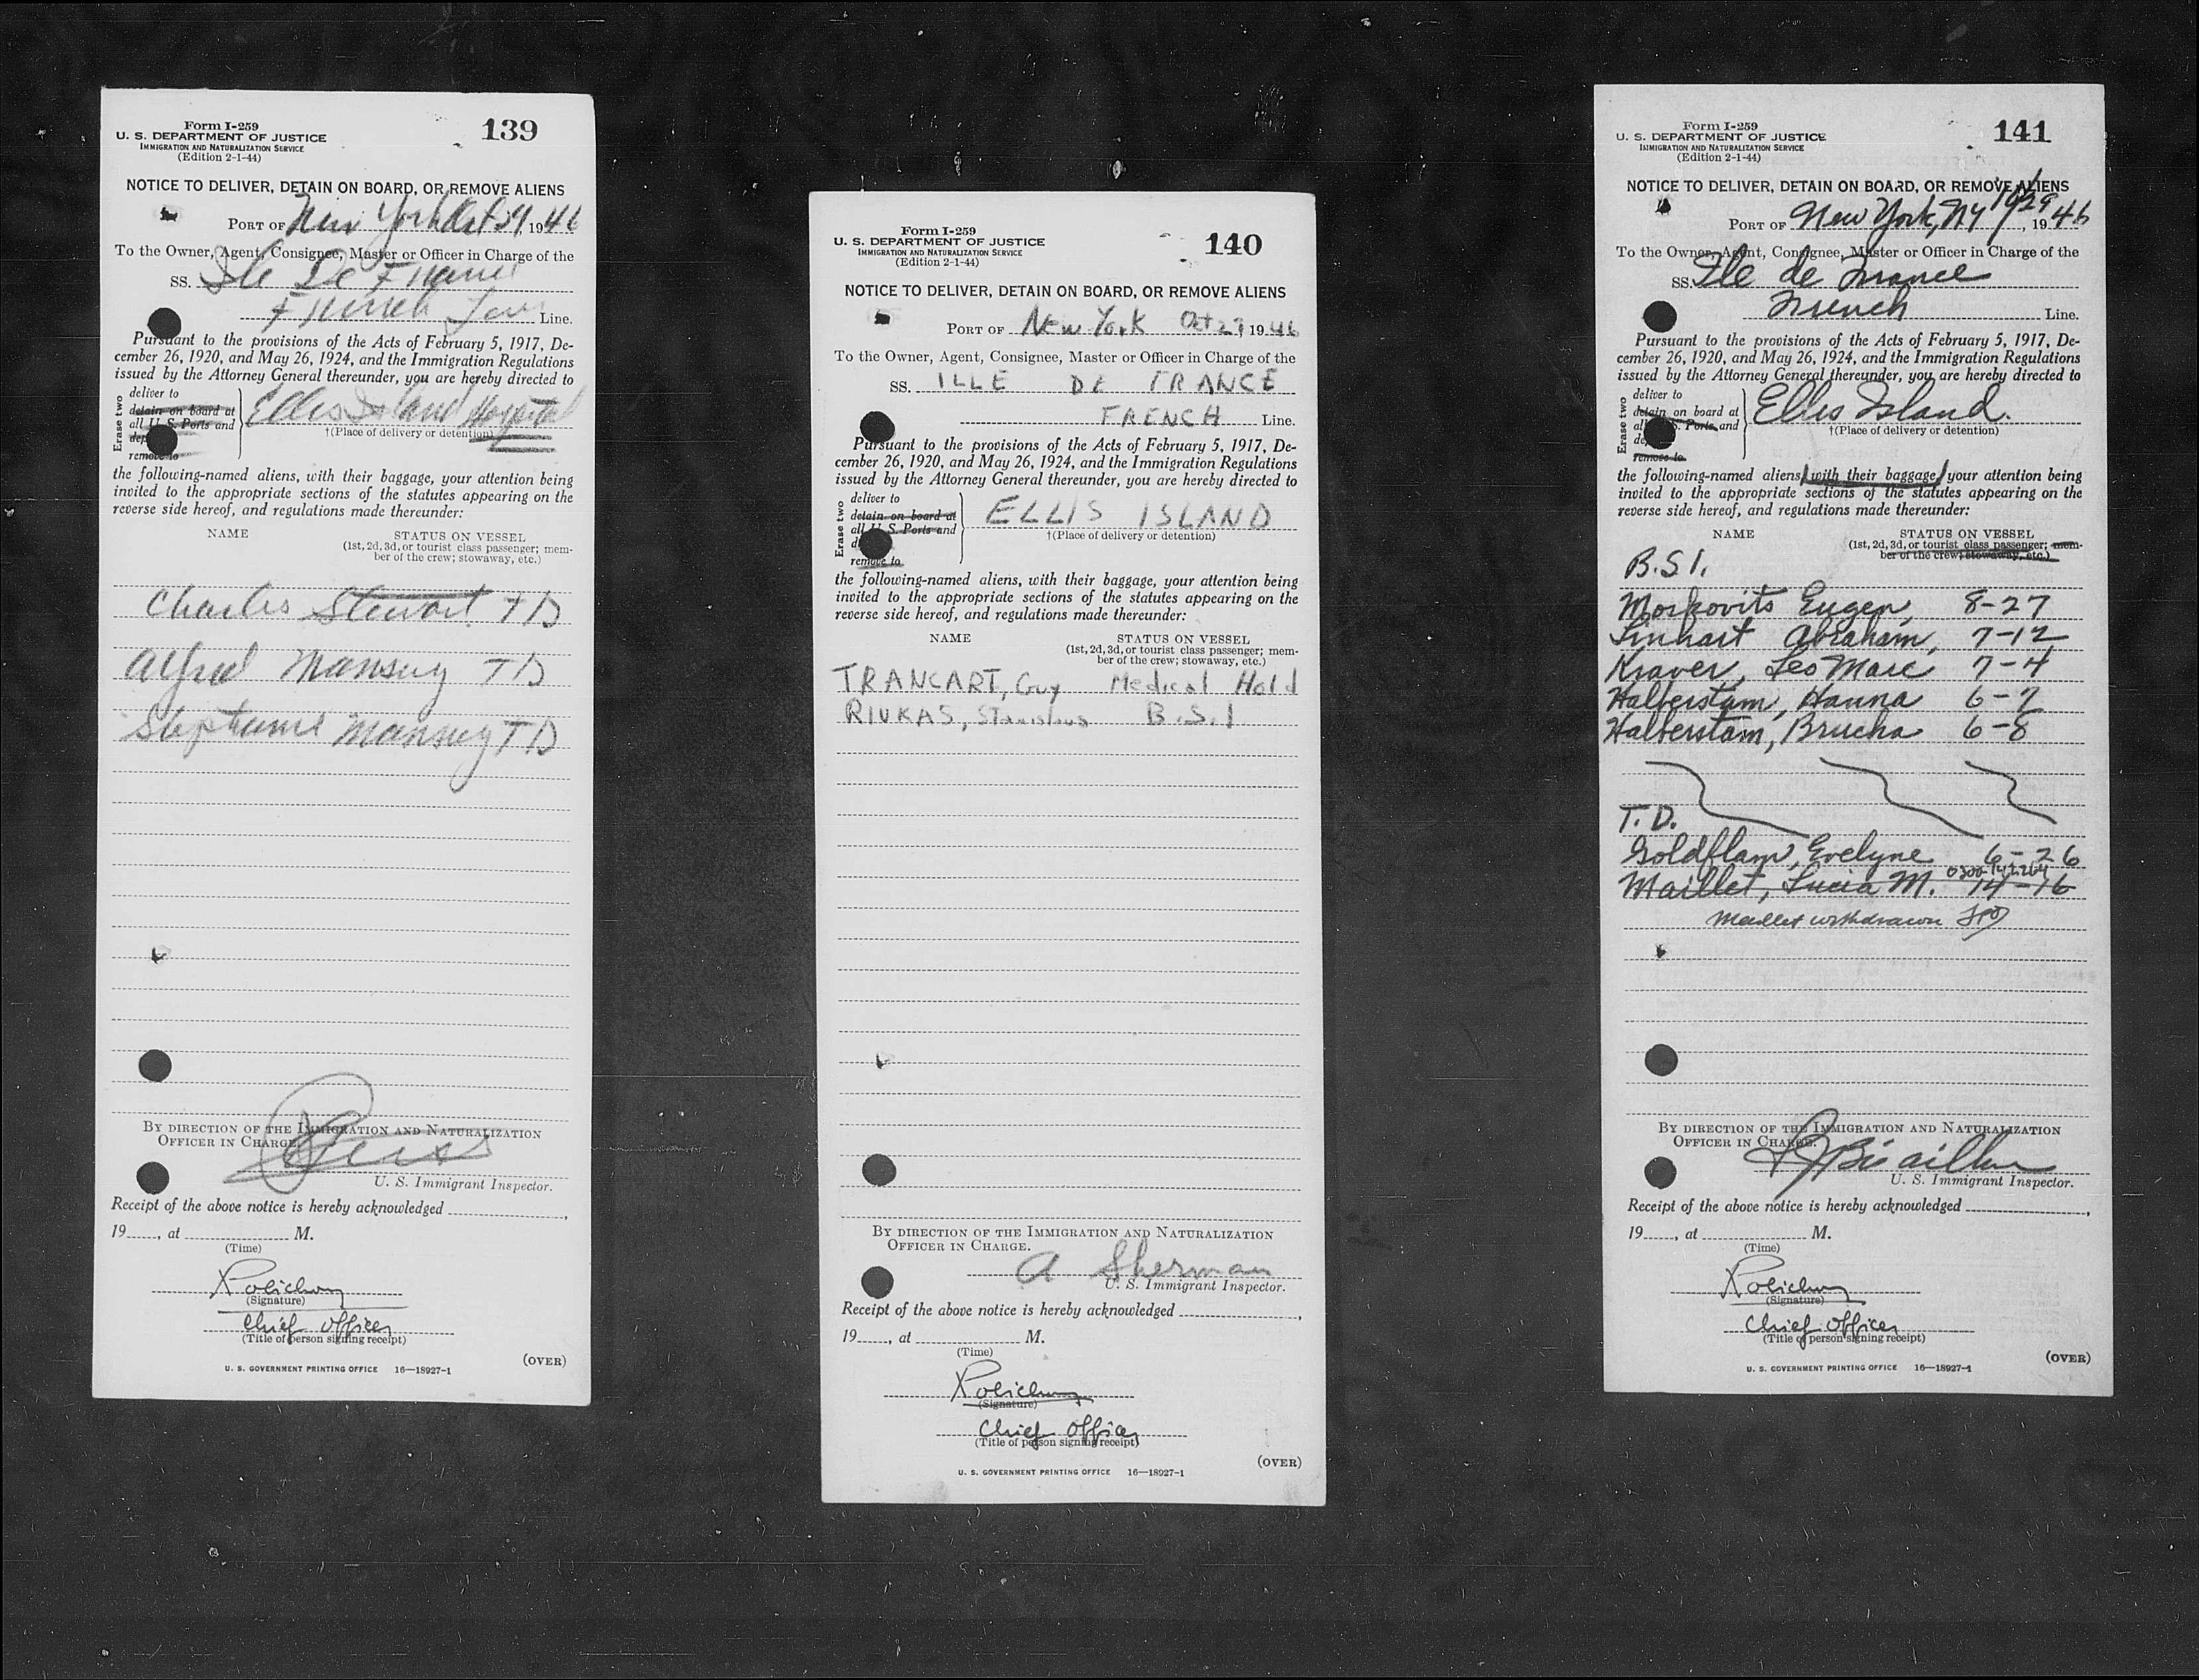 Form I-259
139
U. S. DEPARTMENT OF JUSTICE
IMMIGRATION AND NATURALIZATION SERVICE
(Edition 2-1-44)
NOTICE TO DELIVER, DETAIN ON BOARD, OR REMOVE ALIENS
PORT OF New York Oct 29, 1946
To the Owner, Agent, Consignee, Master or Officer in Charge of the
SS. Ile De France
French Line Line.
Pursuant to the provisions of the Acts of February 5, 1917, De-
cember 26, 1920, and May 26, 1924, and the Immigration Regulations
issued by the Attorney General thereunder, you are hereby directed to
Erase two
deliver to
detain on board at
all U. S. Ports and
dep
remove to
Ellis Island Hospital
†(Place of delivery or detention)
the following-named aliens, with their baggage, your attention being
invited to the appropriate sections of the statutes appearing on the
reverse side hereof, and regulations made thereunder:
NAME STATUS ON VESSEL
(1st, 2d, 3d, or tourist class passenger; mem-
ber of the crew; stowaway, etc.)
Charles Stewart TD
Alfred Mansuy TD
Stephanie Mansuy TD
BY DIRECTION OF THE IMMIGRATION AND NATURALIZATION
OFFICER IN CHARGE.
U. S. Immigrant Inspector.
Receipt of the above notice is hereby acknowledged
19, at M.
(Time)
(Signature)
Chief Officer
(Title of person signing receipt)
U. S. GOVERNMENT PRINTING OFFICE 16—18927-1
(OVER)
Form I-259
140
U. S. DEPARTMENT OF JUSTICE
IMMIGRATION AND NATURALIZATION SERVICE
(Edition 2-1-44)
NOTICE TO DELIVER, DETAIN ON BOARD, OR REMOVE ALIENS
PORT OF New York Oct 29 1946
To the Owner, Agent, Consignee, Master or Officer in Charge of the
SS. ILLE DE FRANCE
FRENCH Line.
Pursuant to the provisions of the Acts of February 5, 1917, De-
cember 26, 1920, and May 26, 1924, and the Immigration Regulations
issued by the Attorney General thereunder, you are hereby directed to
Erase two
deliver to
detain on board at
all U. S. Ports and
d
remove to
ELLIS ISLAND
†(Place of delivery or detention)
the following-named aliens, with their baggage, your attention being
invited to the appropriate sections of the statutes appearing on the
reverse side hereof, and regulations made thereunder:
NAME STATUS ON VESSEL
(1st, 2d, 3d, or tourist class passenger; mem-
ber of the crew; stowaway, etc.)
TRANCART, Guy Medical Hold
RIUKAS, Stanislaus B.S.I
BY DIRECTION OF THE IMMIGRATION AND NATURALIZATION
OFFICER IN CHARGE.
A Sherman
U. S. Immigrant Inspector.
Receipt of the above notice is hereby acknowledged
19, at M.
(Time)
(Signature)
Chief Officer
(Title of person signing receipt)
U. S. GOVERNMENT PRINTING OFFICE 16—18927-1
(OVER)
Form I-259
141
U. S. DEPARTMENT OF JUSTICE
IMMIGRATION AND NATURALIZATION SERVICE
(Edition 2-1-44)
NOTICE TO DELIVER, DETAIN ON BOARD, OR REMOVE ALIENS
PORT OF New York, NY 10/29, 1946
To the Owner, Agent, Consignee, Master or Officer in Charge of the
SS. Ile de France
French Line.
Pursuant to the provisions of the Acts of February 5, 1917, De-
cember 26, 1920, and May 26, 1924, and the Immigration Regulations
issued by the Attorney General thereunder, you are hereby directed to
Erase two
deliver to
detain on board at
all U. S. Ports and
de
remove to
Ellis Island.
†(Place of delivery or detention)
the following-named aliens, with their baggage, your attention being
invited to the appropriate sections of the statutes appearing on the
reverse side hereof, and regulations made thereunder:
NAME STATUS ON VESSEL
(1st, 2d, 3d, or tourist class passenger; mem-
ber of the crew; stowaway, etc.)
B.S.I.
Moskovits Eugen, 8-27
Linhart Abraham, 7-12
Kraver, Leo Marc 7-4
Halberstam, Hanna 6-7
Halberstam, Brucha 6-8
T.D.
Goldflam, Evelyne 6-26
Maillet, Lucia M. 14-16
Maillet withdrawn
BY DIRECTION OF THE IMMIGRATION AND NATURALIZATION
OFFICER IN CHARGE.
U. S. Immigrant Inspector.
Receipt of the above notice is hereby acknowledged
19, at M.
(Time)
(Signature)
Chief Officer
(Title of person signing receipt)
U. S. GOVERNMENT PRINTING OFFICE 16—18927-1
(OVER)